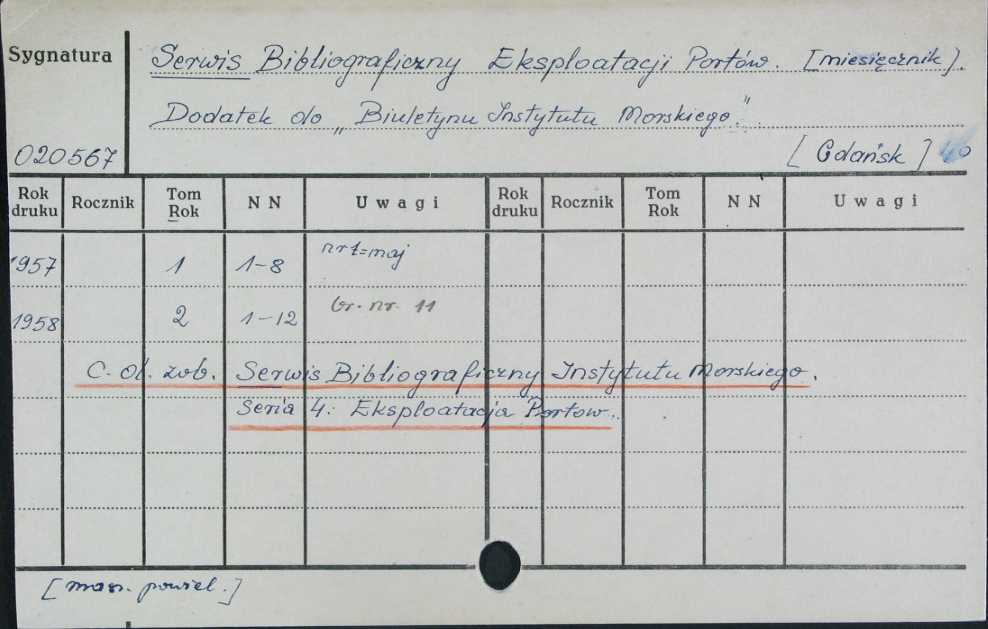 Sygnatura
Serwis Bibliograficzny Eksploatacji Portów. [miesięcznik].
Dodatek do „Biuletynu Instytutu Morskiego."
020567
[Gdańsk] 4o
Rok druku Rocznik Tom Rok NN Uwagi Rok druku Rocznik Tom Rok NN Uwagi
1957 1 1-8 nr 1=maj
1958 2 1-12 br. nr. 11
C. d. zob. Serwis Bibliograficzny Instytutu Morskiego.
Seria 4: Eksploatacja Portów.
[masz. powiel.]